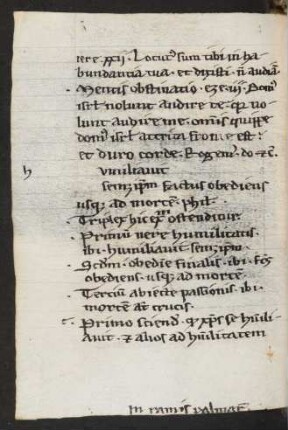 iere. xxii. Locutus sum tibi in ha
bundantia tua. et dixisti. n̄ audiā.
Mentis obstinatio. eze. iii. Dom'
isrl nolunt audire te. q̄ no
lunt audire me. omīs quippe
dom' isrl attrita fronte est.
et duro corde. Rogem' . do. ꝛc.
h
Vmiliauit
semꝫ ip̄m factus obediens
usqꝫ ad mortē. phil'.
Triplex hic ostenditur.
Primū uere humilitatis
ibi. humiliauit semꝫ ip̄m.
Scdm̄. obedīe finalis. ibi. fc̄s
obediens. usqꝫ ad mortē.
Terciū abiecte passionis. ibi.
mortē aūt crucis.
Primo sciend'. q xp̄s se hūili
auit. ⁊ alios ad hūilitatem
In ramis palmaꝝ